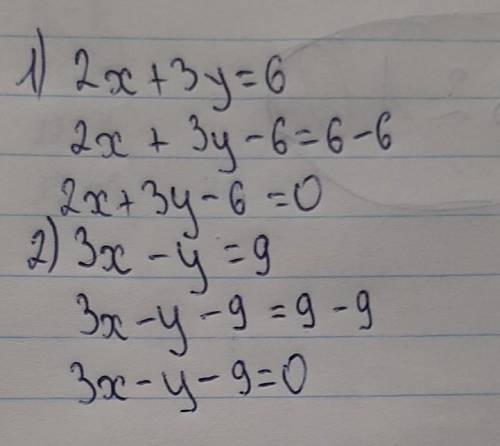 1) 2x + 3y = 6
2x + 3y - 6 = 6 - 6
2x + 3y - 6 = 0
2) 3x - y = 9
3x - y - 9 = 9 - 9
3x - y - 9 = 0